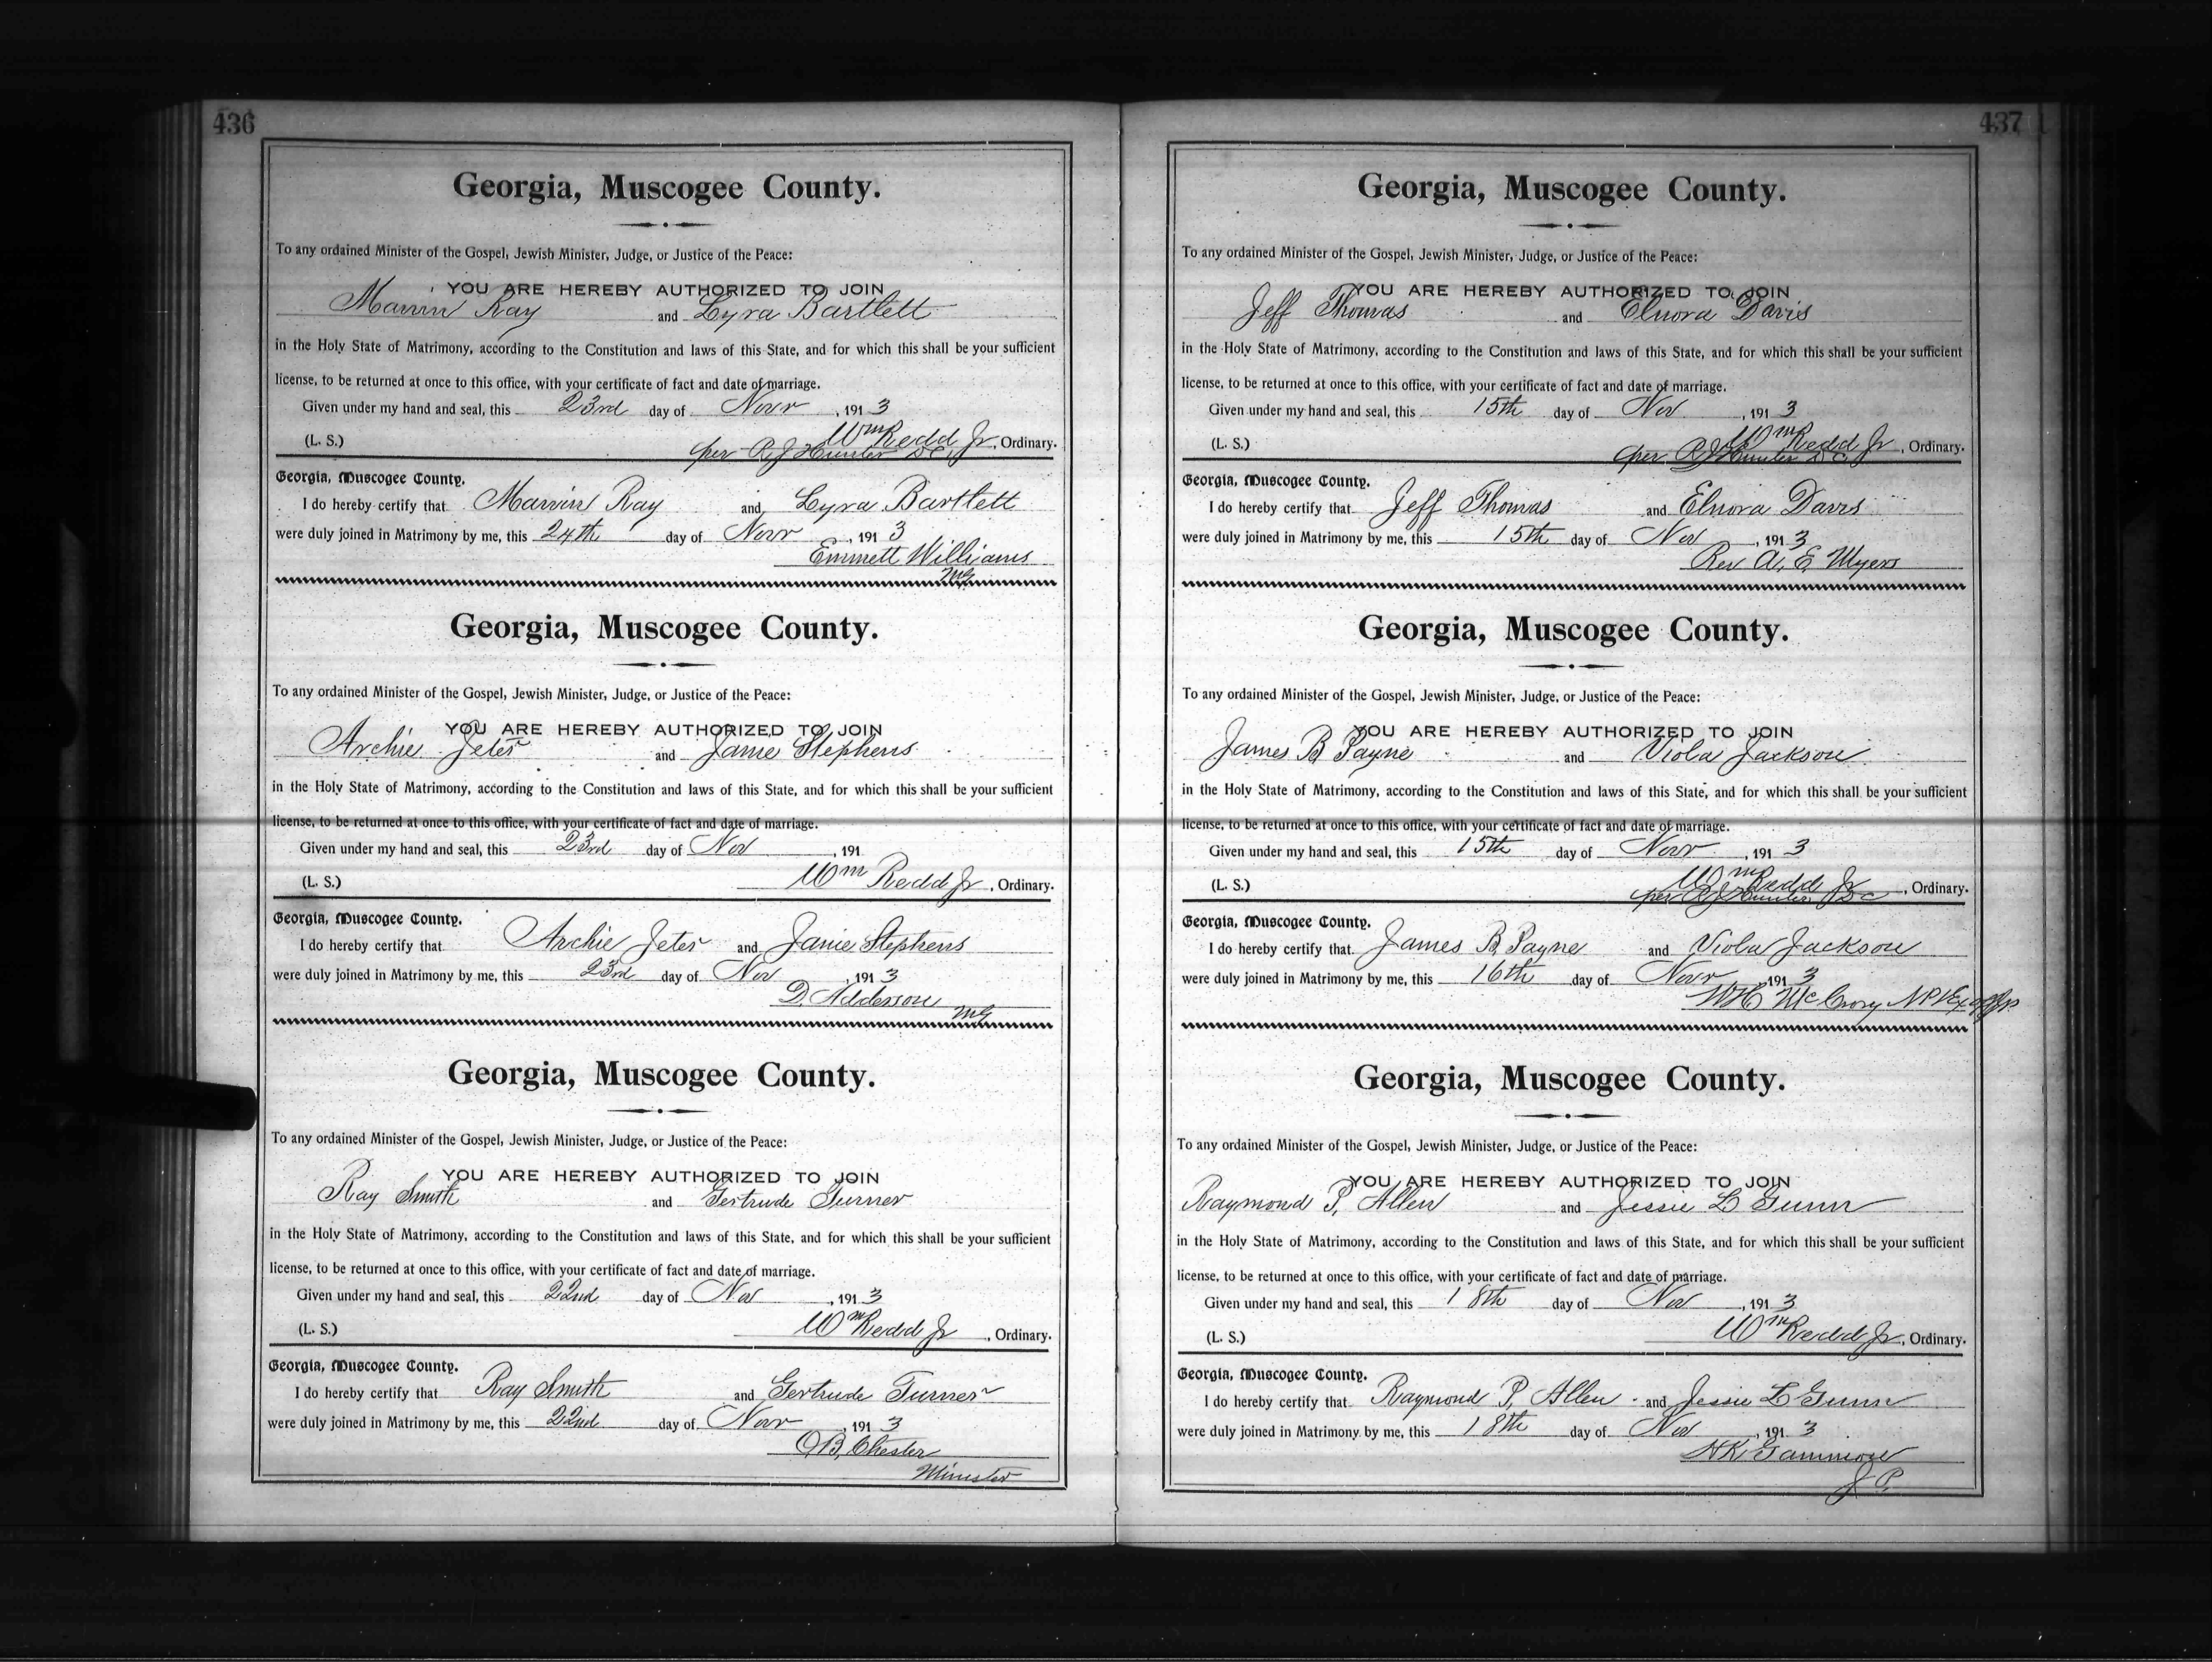 436
Georgia, Muscogee County.
To any ordained Minister of the Gospel, Jewish Minister, Judge, or Justice of the Peace:
YOU ARE HEREBY AUTHORIZED TO JOIN
Marvin Ray and Lyra Bartlett
in the Holy State of Matrimony, according to the Constitution and laws of this State, and for which this shall be your sufficient
license, to be returned at once to this office, with your certificate of fact and date of marriage.
Given under my hand and seal, this 23rd day of Novr, 1913
(L. S.) Wm Redd Jr, Ordinary.
per R J Hunter D C,
Georgia, Muscogee County.
I do hereby certify that Marvin Ray and Lyra Bartlett
were duly joined in Matrimony by me, this 24th day of Novr, 1913
Emmett Williams
MG
Georgia, Muscogee County.
To any ordained Minister of the Gospel, Jewish Minister, Judge, or Justice of the Peace:
YOU ARE HEREBY AUTHORIZED TO JOIN
Archie Jeter and Janie Stephens
in the Holy State of Matrimony, according to the Constitution and laws of this State, and for which this shall be your sufficient
license, to be returned at once to this office, with your certificate of fact and date of marriage.
Given under my hand and seal, this 23rd day of Nov, 191
(L. S.) Wm Redd Jr, Ordinary.
Georgia, Muscogee County.
I do hereby certify that Archie Jeter and Janie Stephens
were duly joined in Matrimony by me, this 23rd day of Nov, 1913
D. Adderson
MG
Georgia, Muscogee County.
To any ordained Minister of the Gospel, Jewish Minister, Judge, or Justice of the Peace:
YOU ARE HEREBY AUTHORIZED TO JOIN
Ray Smith and Gertrude Turner
in the Holy State of Matrimony, according to the Constitution and laws of this State, and for which this shall be your sufficient
license, to be returned at once to this office, with your certificate of fact and date of marriage.
Given under my hand and seal, this 22nd day of Nov, 1913
(L. S.) Wm Redd Jr, Ordinary.
Georgia, Muscogee County.
I do hereby certify that Ray Smith and Gertrude Turner
were duly joined in Matrimony by me, this 22nd day of Novr, 1913
O B, Chester
Minister
437
Georgia, Muscogee County.
To any ordained Minister of the Gospel, Jewish Minister, Judge, or Justice of the Peace:
YOU ARE HEREBY AUTHORIZED TO JOIN
Jeff Thomas and Elnora Davis
in the Holy State of Matrimony, according to the Constitution and laws of this State, and for which this shall be your sufficient
license, to be returned at once to this office, with your certificate of fact and date of marriage.
Given under my hand and seal, this 15th day of Nov, 1913
(L. S.) Wm Redd Jr, Ordinary.
per R J Hunter D C
Georgia, Muscogee County.
I do hereby certify that Jeff Thomas and Elnora Davis
were duly joined in Matrimony by me, this 15th day of Nov, 1913
Rev A. E. Myers
Georgia, Muscogee County.
To any ordained Minister of the Gospel, Jewish Minister, Judge, or Justice of the Peace:
YOU ARE HEREBY AUTHORIZED TO JOIN
James B Payne and Viola Jackson
in the Holy State of Matrimony, according to the Constitution and laws of this State, and for which this shall be your sufficient
license, to be returned at once to this office, with your certificate of fact and date of marriage.
Given under my hand and seal, this 15th day of Novr, 1913
(L. S.) Wm Redd Jr, Ordinary.
per R J Hunter D C
Georgia, Muscogee County.
I do hereby certify that James B, Payne and Viola Jackson
were duly joined in Matrimony by me, this 16th day of Novr, 1913
McCrory NP & Ex off JP
Georgia, Muscogee County.
To any ordained Minister of the Gospel, Jewish Minister, Judge, or Justice of the Peace:
YOU ARE HEREBY AUTHORIZED TO JOIN
Raymond P, Allen and Jessie L Gunn
in the Holy State of Matrimony, according to the Constitution and laws of this State, and for which this shall be your sufficient
license, to be returned at once to this office, with your certificate of fact and date of marriage.
Given under my hand and seal, this 18th day of Nov, 1913
(L. S.) Wm Redd Jr, Ordinary.
Georgia, Muscogee County.
I do hereby certify that Raymond P, Allen and Jessie L Gunn
were duly joined in Matrimony by me, this 18th day of Nov, 1913
Gammon
J P,